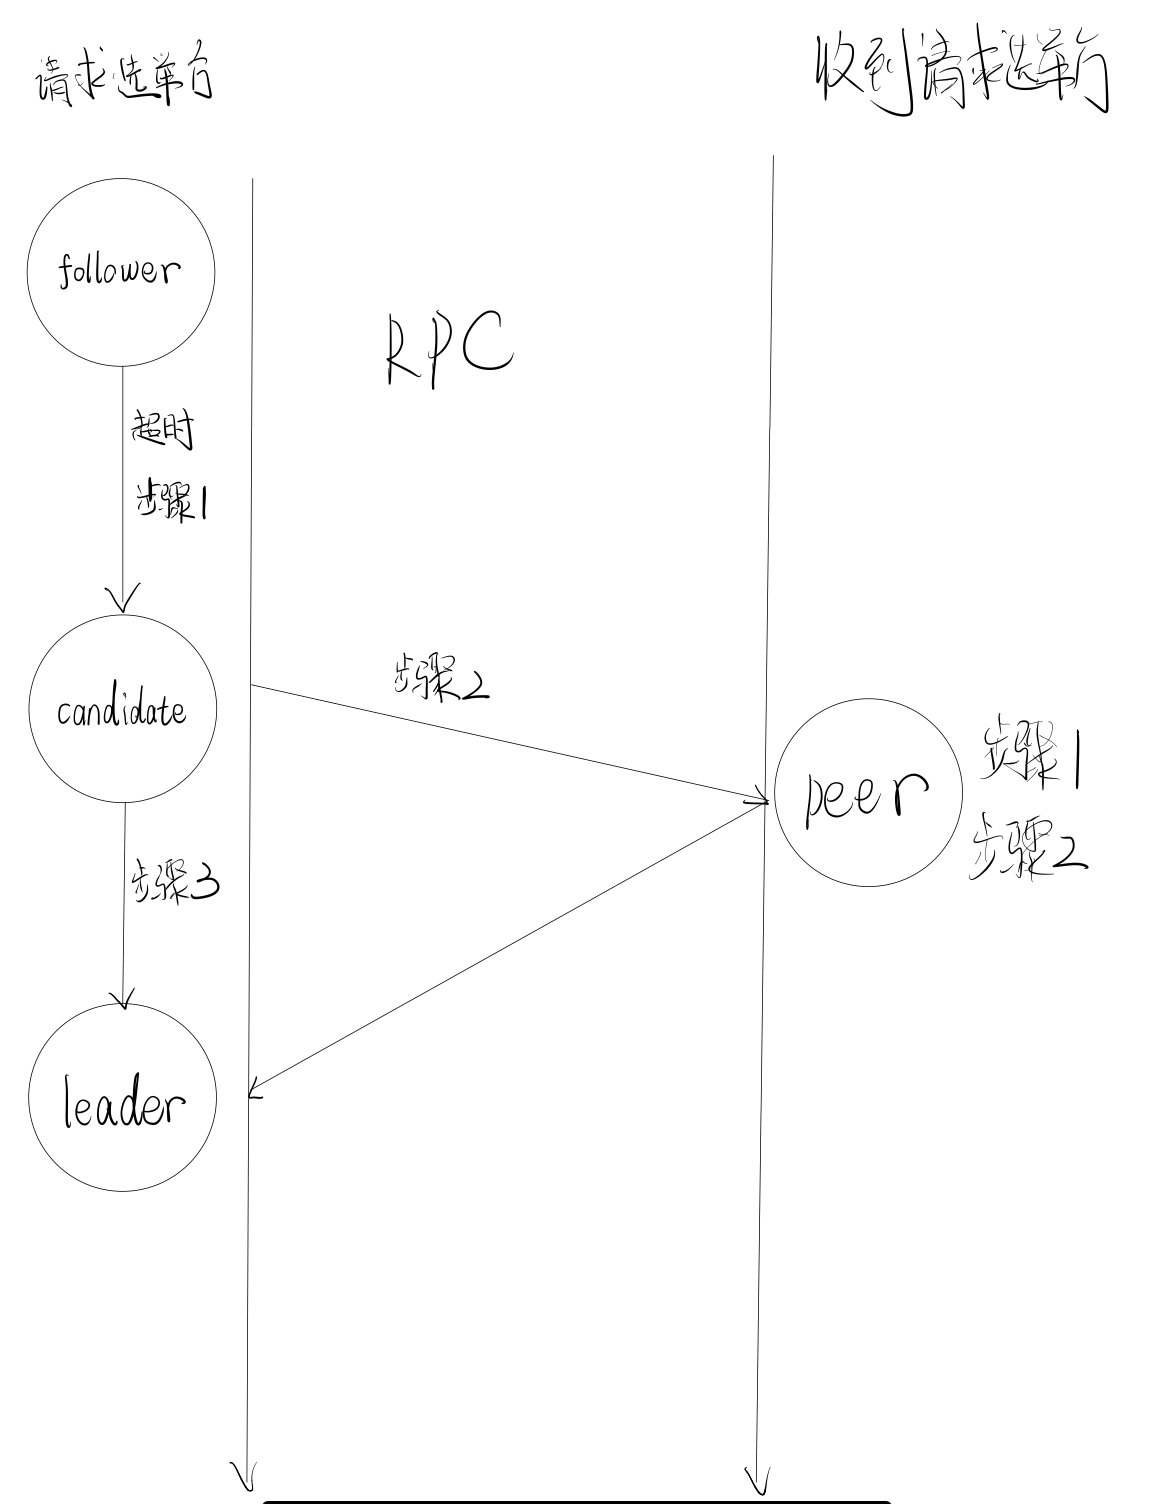 请求选举方
收到请求选举方
follower
RPC
超时
步骤1
步骤2
candidate
peer
步骤1
步骤2
步骤3
leader